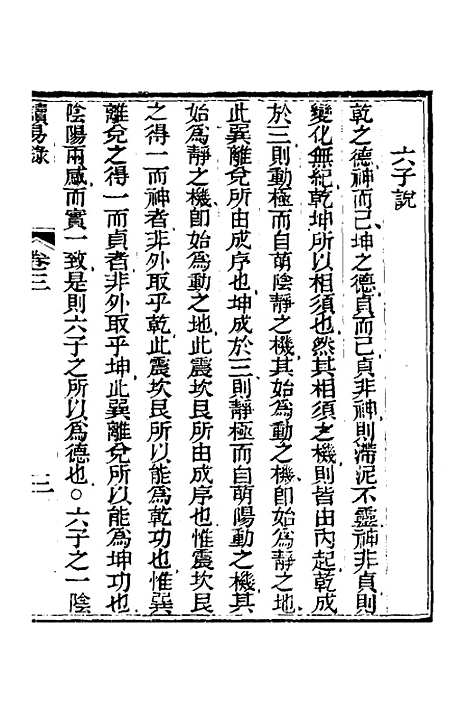 六子說
乾之德神而已坤之德貞而已貞非神則滯泥不靈神非貞則
變化無紀乾坤所以相須也然其相須之機則皆由內起乾成
於三則動極而自萌陰靜之機其始為動之機卽始為靜之地
此巽離兌所由成序也坤成於三則靜極而自萌陽動之機其
始為靜之機卽始為動之地此震坎艮所由成序也惟震坎艮
之得一而神者非外取乎乾此震坎艮所以能為乾功也惟巽
離兌之得一而貞者非外取乎坤此巽離兌所以能為坤功也
陰陽兩感而實一致是則六子之所以為德也○六子之一陰
讀易錄
卷三
二